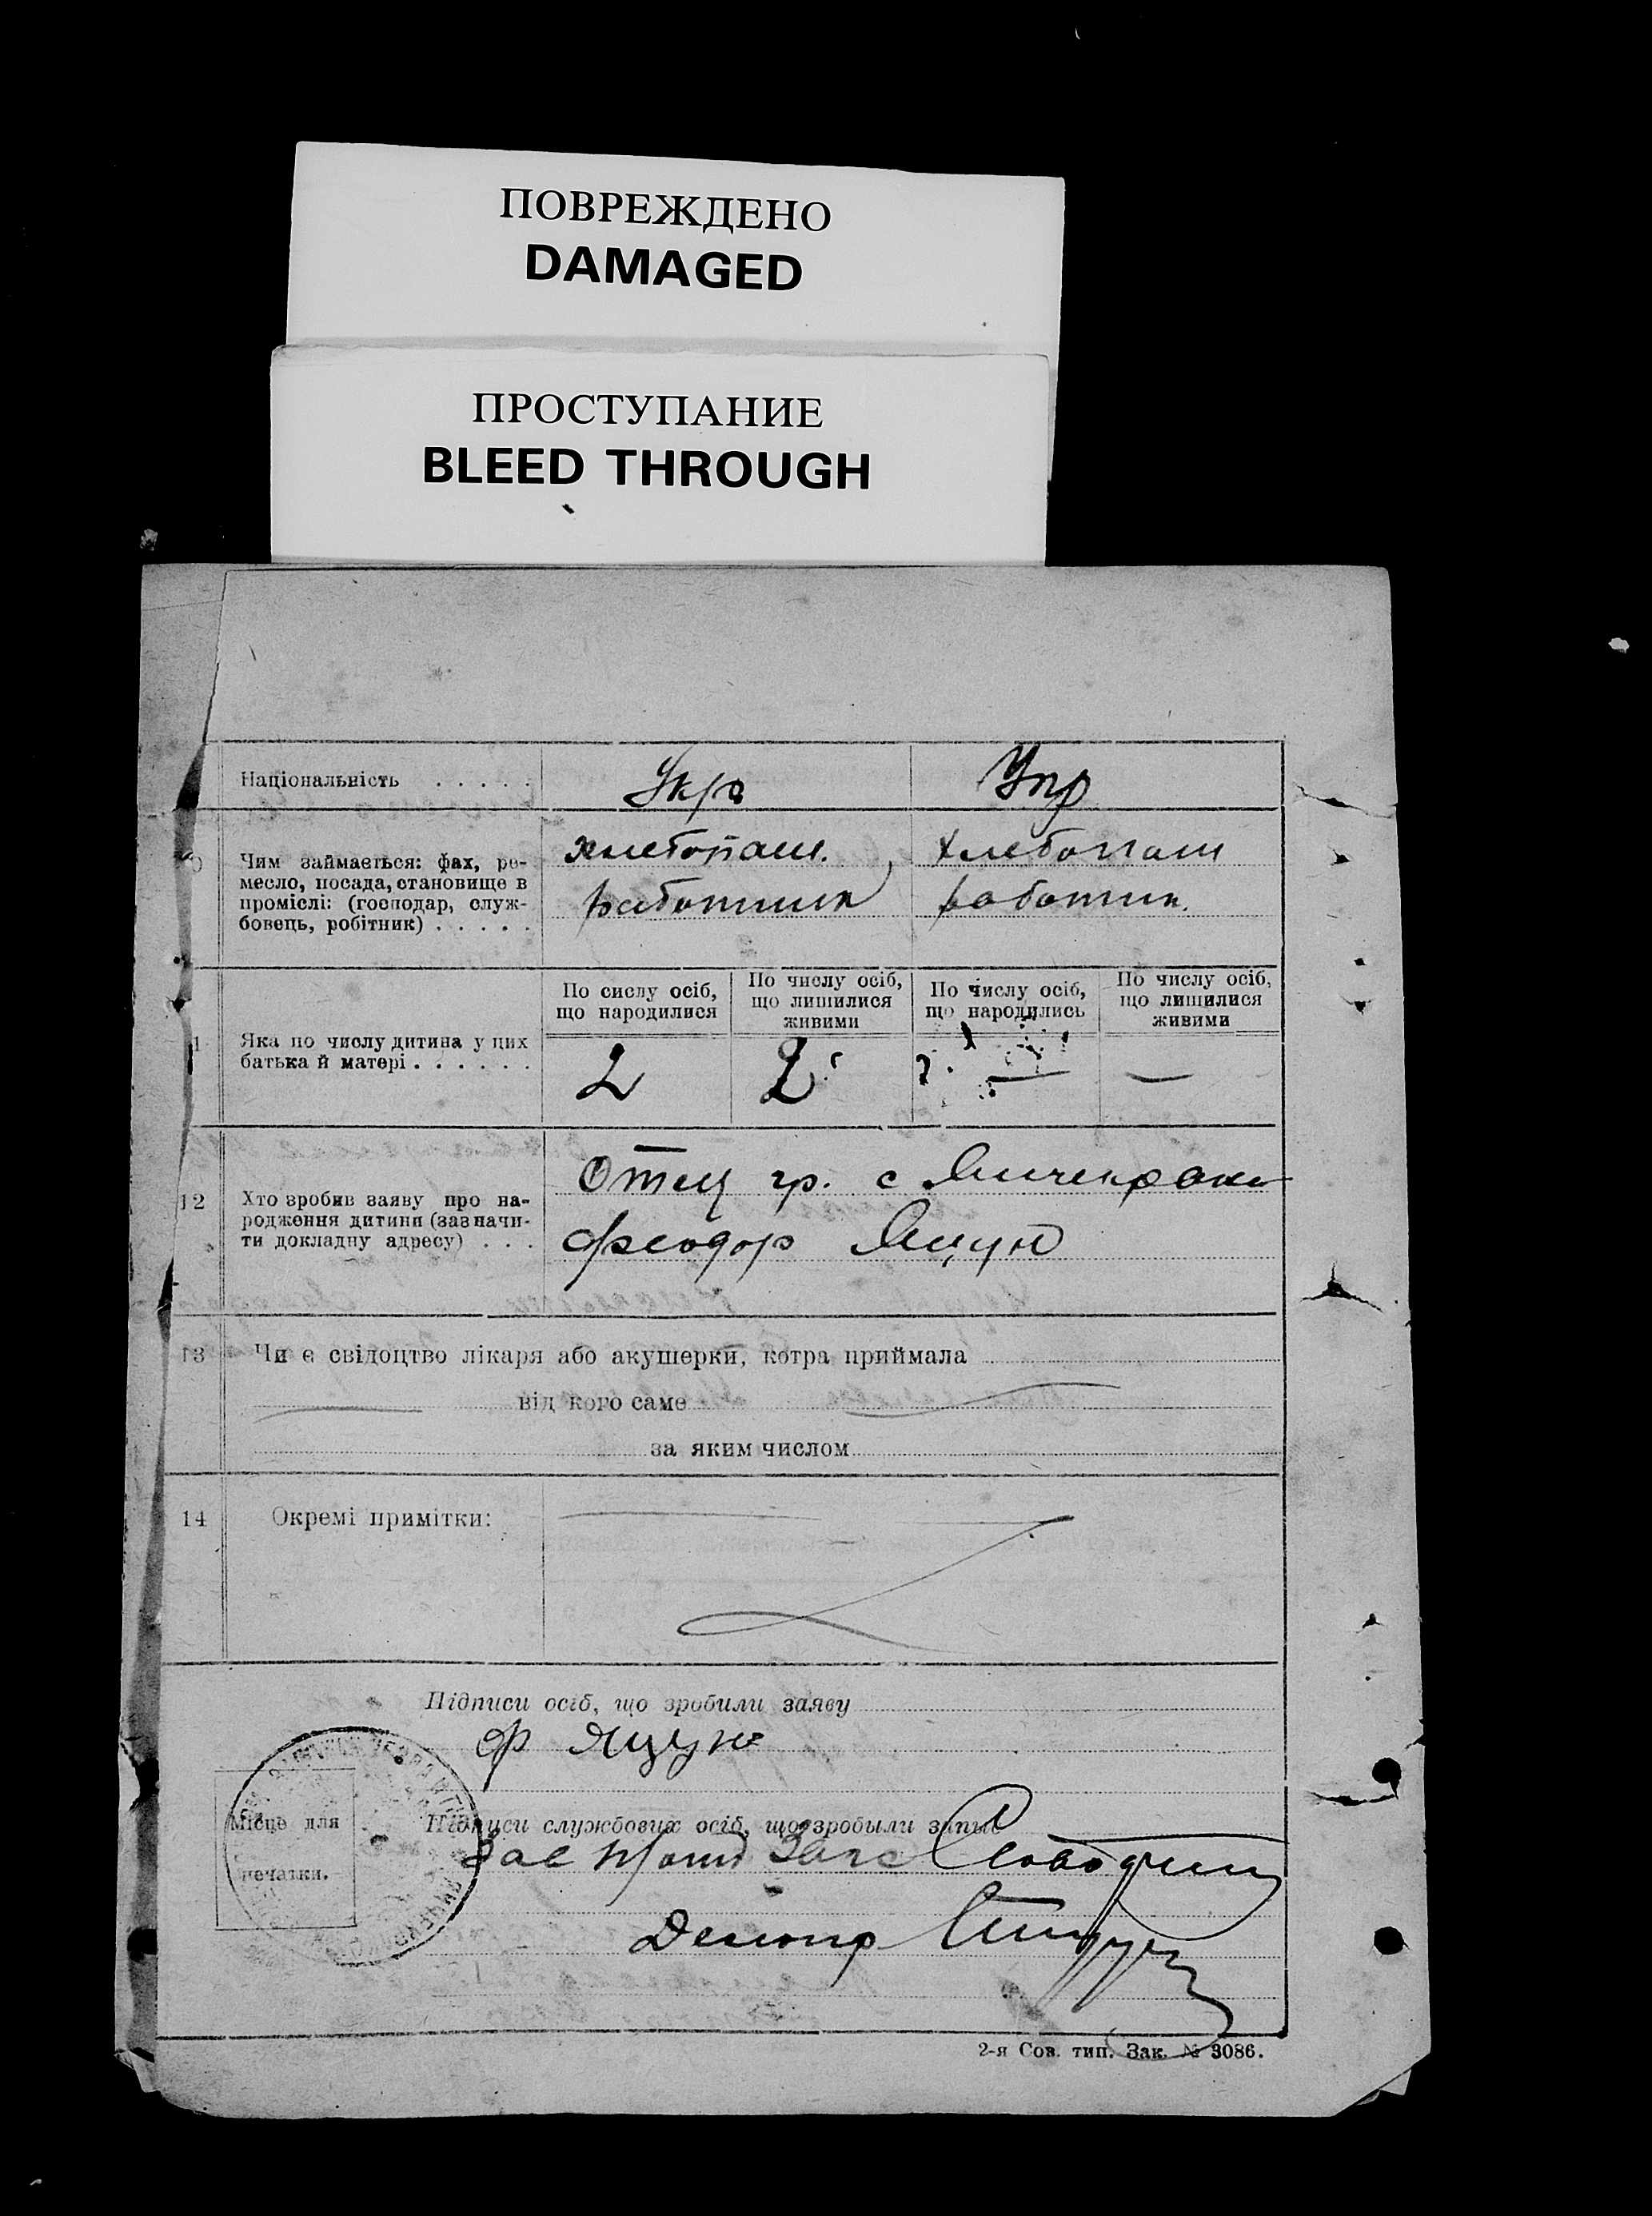 ПОВРЕЖДЕНО
DAMAGED
ПРОСТУПАНИЕ
BLEED THROUGH
Національність . . . . .
Укр
Укр
Чим займається: фах, ре-
месло, посада, становище в
проміслі: (господар, служ-
бовець, робітник) . . . . .
хлебопаш.
работник
хлебопаш
работник.
По сислу осіб,
що народилися
По числу осіб,
що лишилися
живими
По числу осіб,
що народились
По числу осіб,
що лишилися
живими
Яка по числу дитина у цих
батька й матері . . . . . .
2
2
—
—
12
Хто зробив заяву про на-
родження дитини (зазначи-
ти докладну адресу) . . .
Отец гр. с
Феодор Яцун
13
Чи є свідоцтво лікаря або акушерки, котра приймала
від кого саме
за яким числом
14
Окремі примітки:
Підписи осіб, що зробили заяву
Ф Яцун
Підписи службових осіб, що зробыли запис
Місце для
печатки.
Зав Загс
Делопр
2-я Сов. тип. Зак. № 3086.